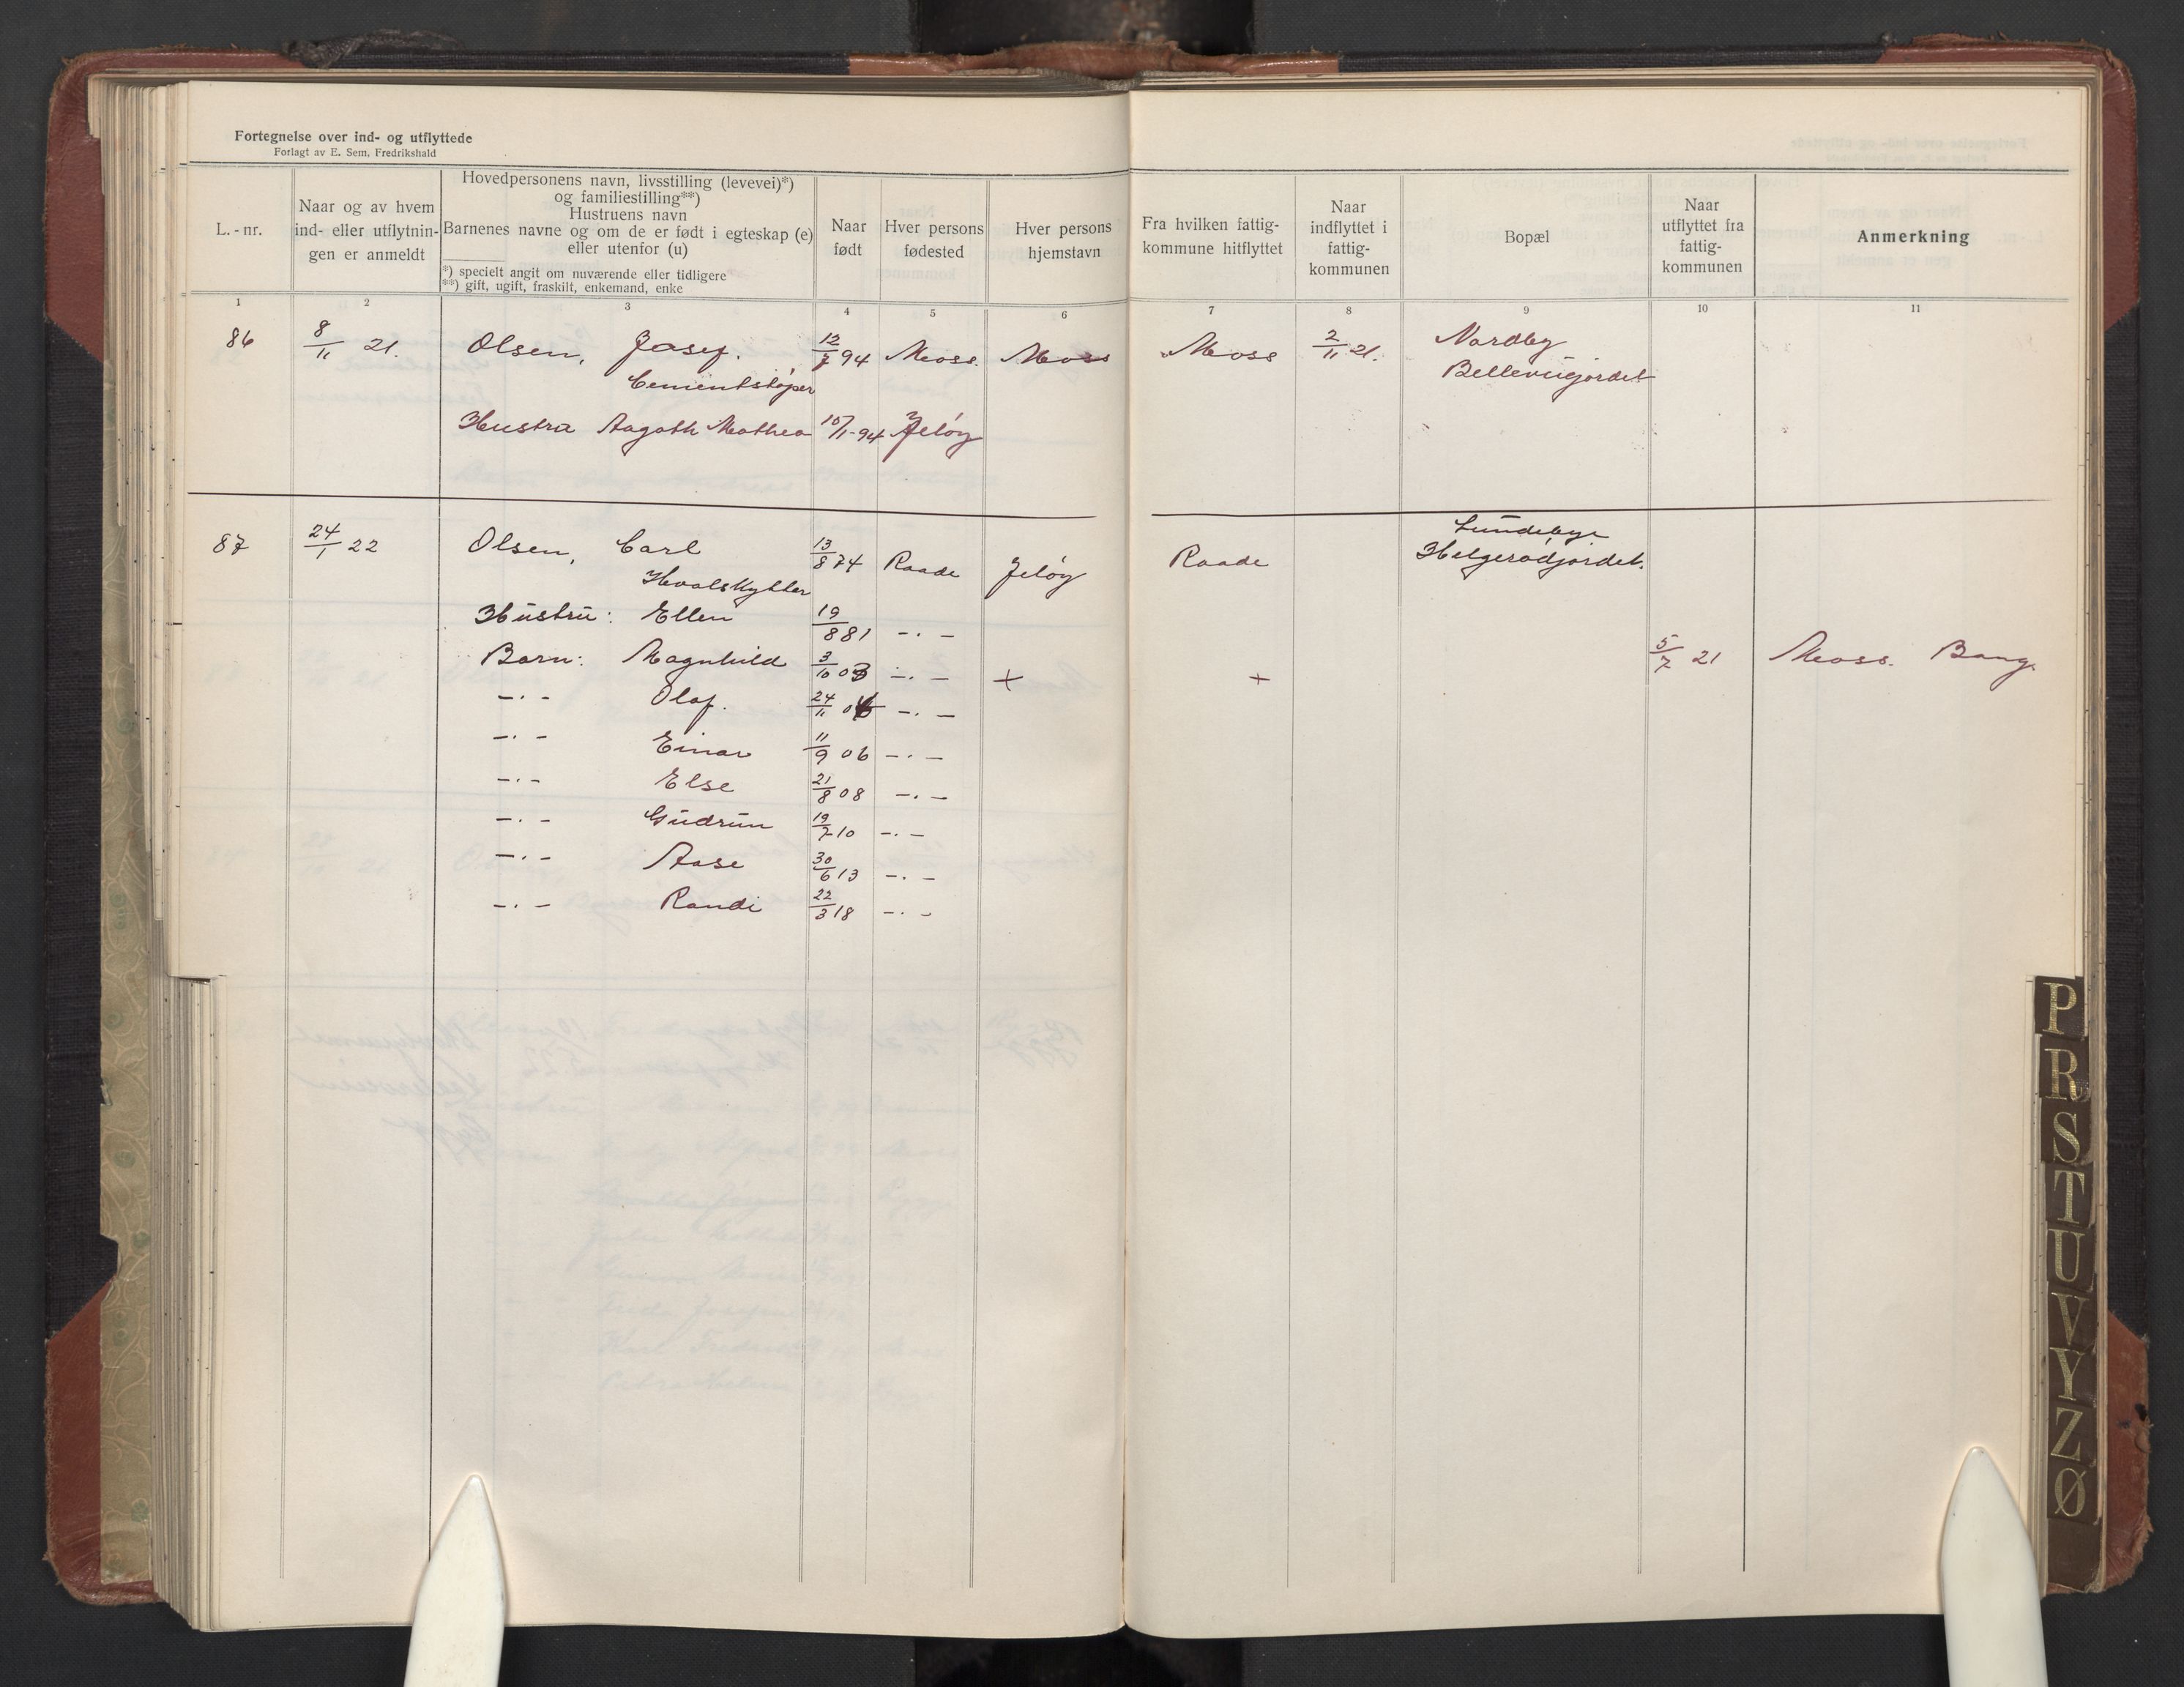 Fortegnelse over ind- og utflyttede
Forlagt av E. Sem, Fredrikshald
L.-nr.
Naar og av hvem ind- eller utflytnin- gen er anmeldt
Hovedpersonens navn, livsstilling (levevei)*)
og familiestilling**)
Hustruens navn
Barnenes navne og om de er født i egteskap (e)
eller utenfor (u)
*) specielt angit om nuværende eller tidligere
**) gift, ugift, fraskilt, enkemand, enke
Naar født
Hver persons fødested
Hver persons hjemstavn
Fra hvilken fattig- kommune hitflyttet
Naar indflyttet i fattig- kommunen
Bopæl
Naar utflyttet fra fattig- kommunen
Anmerkning
1 2 3 4 5 6 7 8 9 10 11
86 8/11 21. Olsen, Josef. 12/7 94 Moss. Moss Moss 2/11 21. Nordby
Cementstøper Bellevuejordet
Hustru Aagoth Mathea 10/1-94 Jeløy
Lundebye
87 24/1 22 Olsen, Carl 13/8 74 Raade Jeløy Raade Helgerødjordet.
Hvalskytter
Hustru: Ellen 19/8 81 -.-
Barn: Magnhild 3/10 03 -.- + + 5/7 21 Moss. Bang.
-.- Olaf. 24/11 -.-
-.- Einar 11/9 06 -.-
-.- Else 21/8 08 -.-
-.- Gudrun 19/7 10 -.-
-.- Aase 30/6 13 -.-
-.- Randi 22/3 18 -.-
P
R
S
T
U
V
Y
Z
Ø